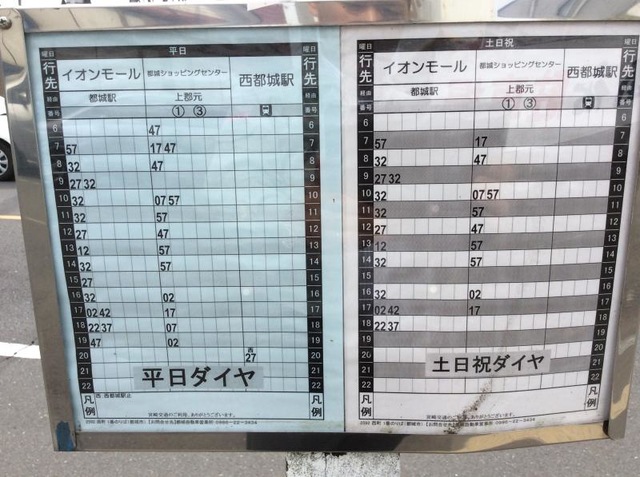 曜日 平日 曜日
行先 イオンモール 都城ショッピングセンター 西都城駅 行先
経由 都城駅 上郡元 経由
番号 ① ③ 番号
6 47 6
7 57 17 47 7
8 32 47 8
9 27 32 9
10 32 07 57 10
11 32 57 11
12 27 47 12
13 12 57 13
14 32 57 14
15 27 15
16 32 02 16
17 02 42 17 17
18 22 37 07 18
19 47 02 19
20 西 27 20
21 21
22 22
平日ダイヤ
凡例 西:西都城駅止 凡例
宮崎交通のご利用、ありがとうございます。
曜日 土日祝 曜日
行先 イオンモール 都城ショッピングセンター 西都城駅 行先
経由 都城駅 上郡元 経由
番号 ① ③ 番号
6 6
7 57 17 7
8 32 47 8
9 27 32 9
10 32 07 57 10
11 32 57 11
12 27 47 12
13 12 57 13
14 32 57 14
15 15
16 32 02 16
17 02 42 17 17
18 22 37 18
19 19
20 20
21 21
22 22
土日祝ダイヤ
凡例 凡例
宮崎交通のご利用、ありがとうございます。